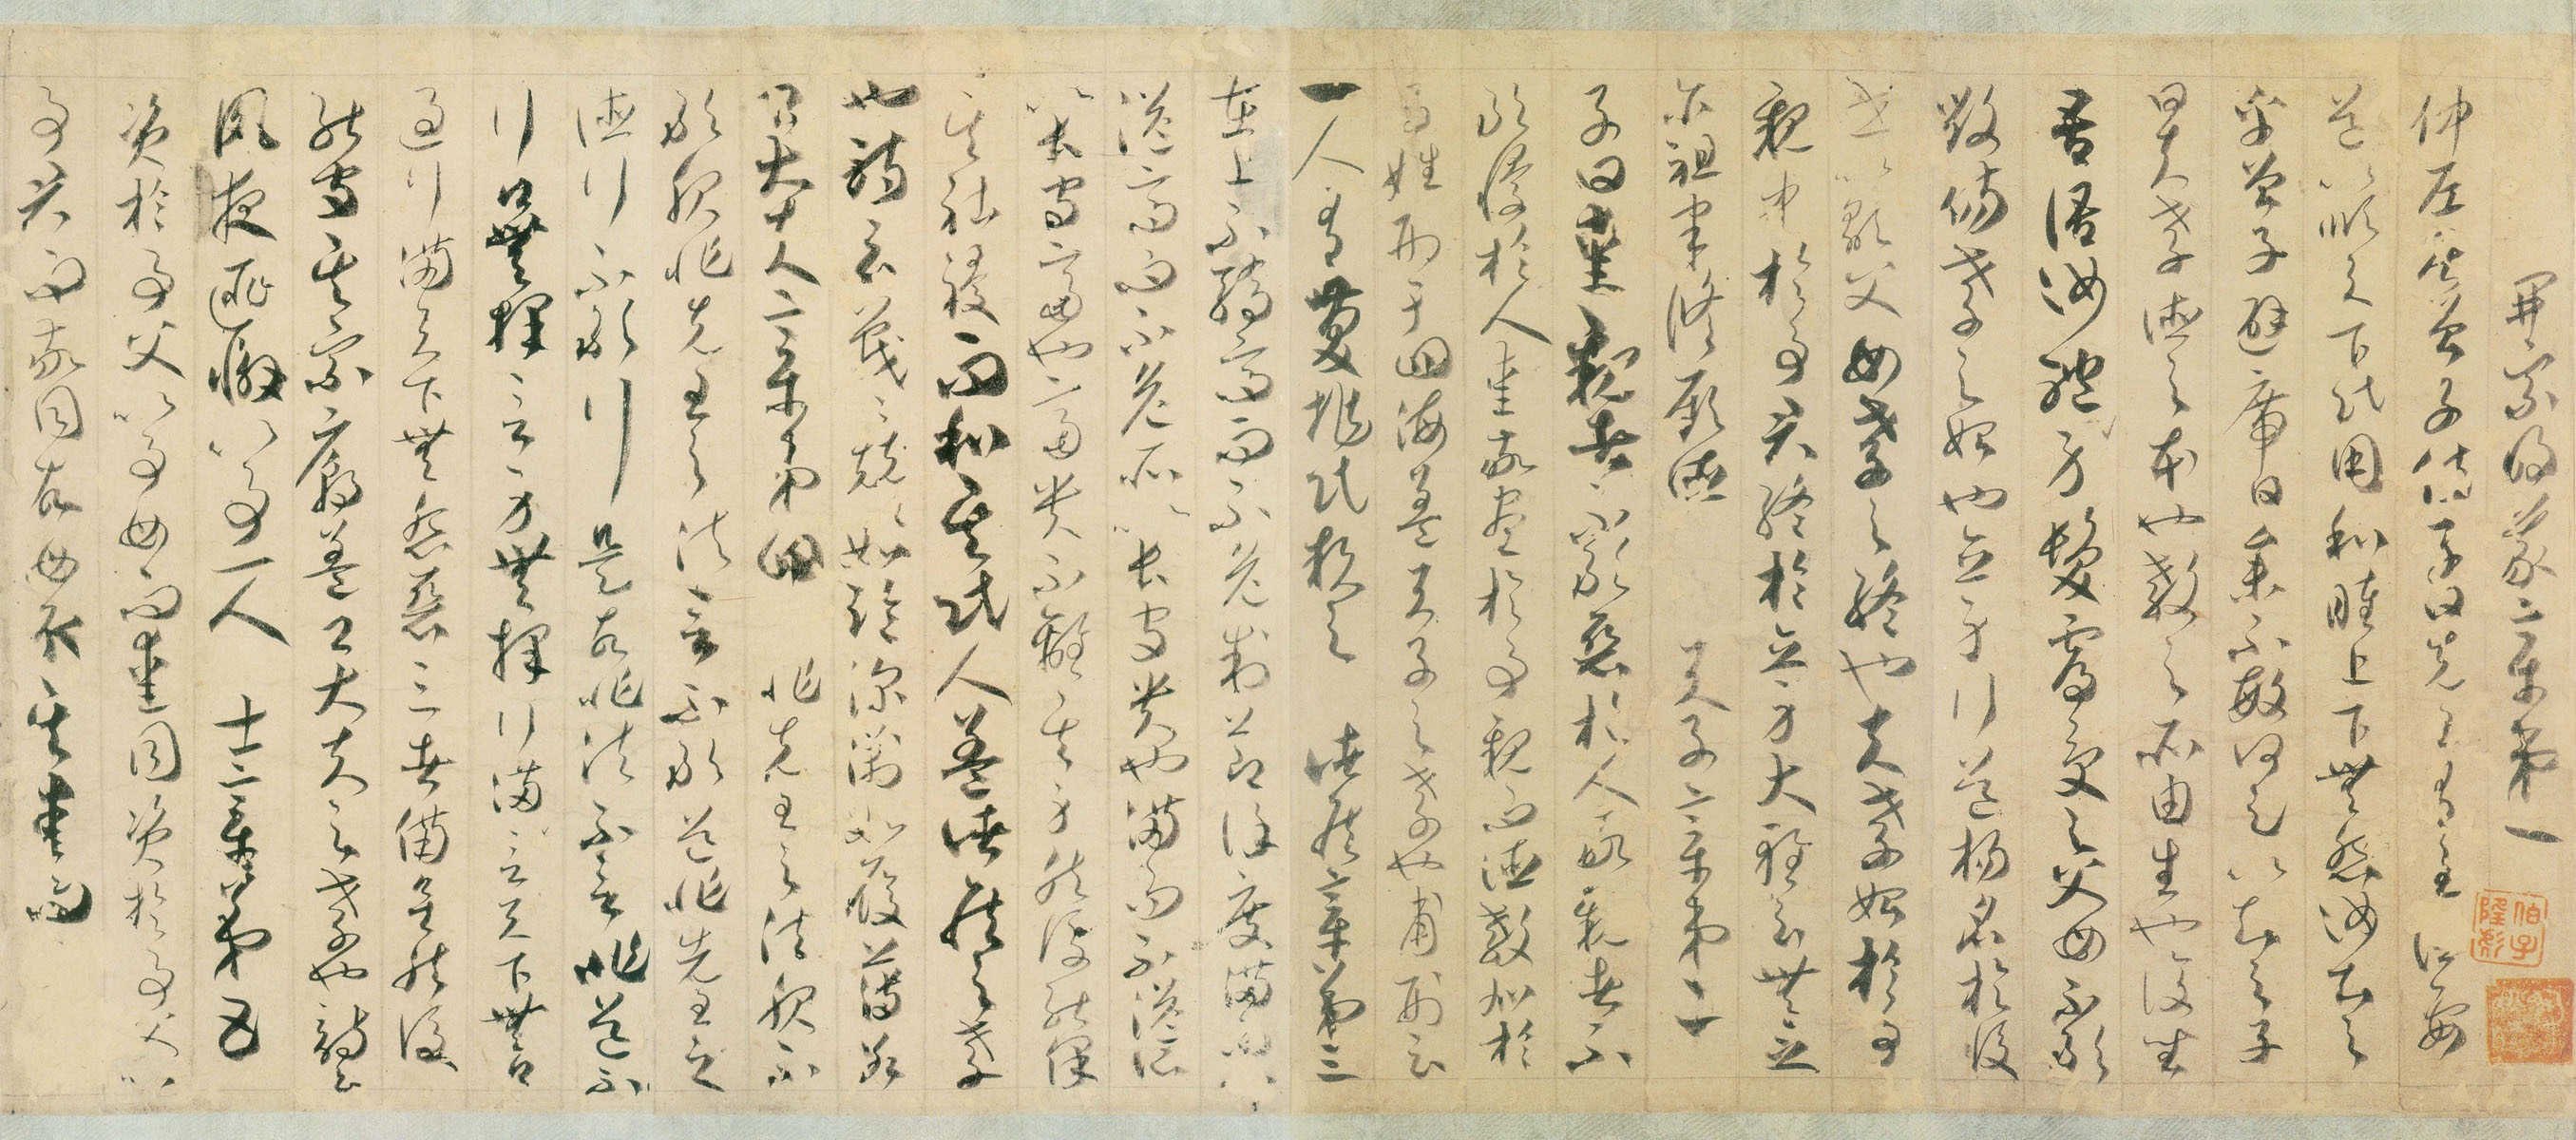 開宗明義章第一
仲尼居曾子侍子曰先王有至德要
道以順天下民用和睦上下無怨汝知之
乎曾子避席曰參不敏何足以知之子
曰夫孝德之本也教之所由生也復坐
吾語汝體身髮膚受之父母不敢
毀傷孝之始也立身行道揚名於後
世以顯父母孝之終也夫孝始於事
親中於事君終於立身大雅云無念
尒祖聿脩厥德 天子章第二
子曰愛親者不敢惡於人敬親者不
敢慢於人愛敬盡於事親而德教加於
百姓刑于四海蓋天子之孝也甫刑云
一人有慶兆民賴之 諸侯章第三
在上不驕高而不危制節謹度滿而不
溢高而不危所以長守貴也滿而不溢所
以長守富也富貴不離其身然後能保
其社稷而和其民人蓋諸侯之孝
也詩云戰戰兢兢如臨深淵如履薄氷
卿大夫章第四 非先王之法服不
敢服非先王之法言不敢道非先王之
德行不敢行是故非法不言非道不
行口無擇言身無擇行言滿天下無口
過行滿天下無怨惡三者備矣然後
能守其宗廟蓋卿大夫之孝也詩云
夙夜匪懈以事一人 士章第五
資於事父以事母而愛同資於事父以
事君而敬同故母取其愛而